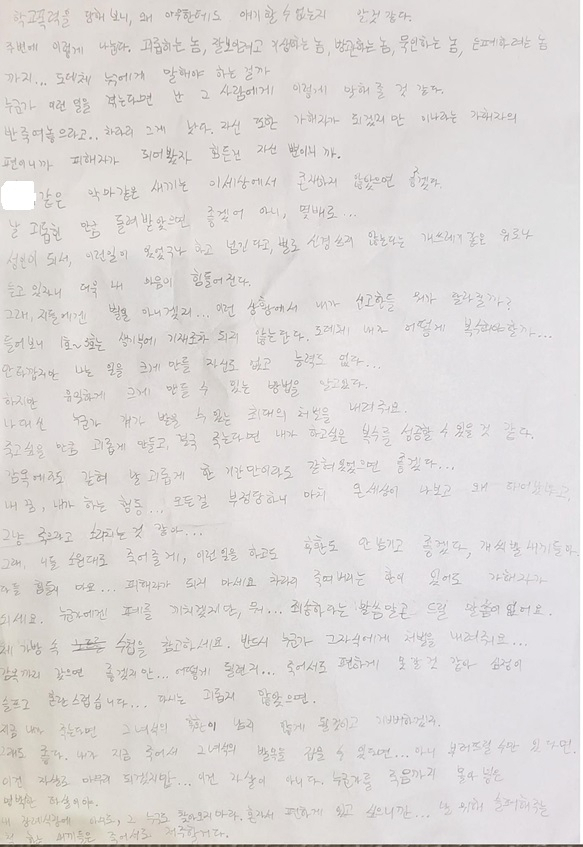 학교폭력을 당해 보니, 왜 아무한테도 얘기할 수 없는지 알것 같다.
주변에 이렇게 나뉜다. 괴롭히는 놈, 잘보이려고 가담하는 놈, 방관하는 놈, 묵인하는 놈, 은폐하려는 놈
까지... 도대체 누구에게 말해야 하는걸까
누군가 이런 일들을 겪는다면 난 그 사람에게 이렇게 말해 줄 것 같다.
반 죽여놓으라고.. 차라리 그게 낫다. 자신 또한 가해자가 되겠지만 이나라는 가해자의
편이니까 피해자가 되어봤자 힘든건 자신 뿐이니까.
같은 악마같은 새끼는 이세상에서 존재하지 않았으면 좋겠다.
날 괴롭힌 만큼 돌려받았으면 좋겠어 아니, 몇배로...
성인이 되서, 이런일이 있었구나 하고 넘긴다고, 별로 신경쓰지 않는다는 개쓰레기 같은 위로나
듣고 있자니 더욱 내 마음이 힘들어진다.
그래, 지들에겐 별일 아니겠지... 이런 상황에서 내가 신고한들 뭐가 달라질까?
들어보니 1호~3호는 생기부에 기재조차 되지 않는단다. 도대체 내가 어떻게 복수해야할까...
안타깝지만 나는 일을 크게 만들 자신도 없고 능력도 없다...
하지만 유일하게 크게 만들 수 있는 방법을 알고있다.
나대신 누군가 걔가 받을 수 있는 최대의 처벌을 내려줘요.
죽고싶을 만큼 괴롭게 만들고, 결국 죽는다면 내가 하고싶은 복수를 성공할 수 있을 것 같다.
감옥에라도 갇혀 날 괴롭게 한 기간만이라도 갇혀있었으면 좋겠다...
내 꿈, 내가 하는 행동... 모든걸 부정당하니 마치 온세상이 나보고 왜 태어났냐고,
그냥 죽으라고 소리치는 것 같아...
그래, 니들 소원대로 죽어줄게, 이런일을 하고도 후환도 안 남기고 좋겠다, 개 새끼들아
다들 힘들지 마요... 피해자가 되지 마세요 차라리 죽여버리는 한이 있어도 가해자가
되세요. 누군가에겐 폐를 끼치겠지만, 뭐... 죄송하다는 말씀말곤 드릴 말씀이 없어요.
제 가방 속 수첩을 참고하세요. 반드시 누군가 그자식에게 처벌을 내려줘요...
감옥까지 갔으면 좋겠지만... 어떻게 될런지... 죽어서도 편하게 못갈것 같아 심정이
슬프고 혼란스럽습니다... 다시는 괴롭지 않았으면.
지금 내가 죽는다면 그녀석의 후환이 남지 않게 될것이고 기뻐하겠지.
그래도 좋다. 내가 지금 죽어서 그녀석의 발목을 잡을 수 있다면... 아니 부러뜨릴 수만 있다면.
이건 자살로 마무리 되겠지만... 이건 자살이 아니다. 누군가를 죽음까지 몰아넣은
명백한 타살이야.
내 장례식장에 아무도, 그 누구도 찾아오지마라. 혼자서 편하게 있고 싶으니까... 날 위해 슬퍼해주는
척 하는 새끼들은 죽어서도 저주할거다.